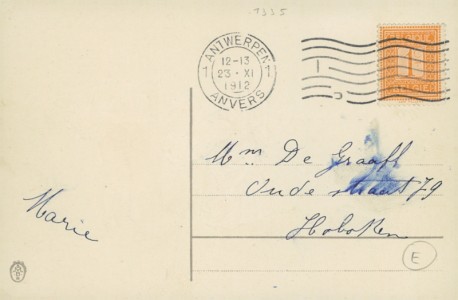 1335
ANTWERPEN
1 1
12-13
23·XI
1912
ANVERS
1
Mm De Graaff
Oude straat 79
Hoboken
Marie
E